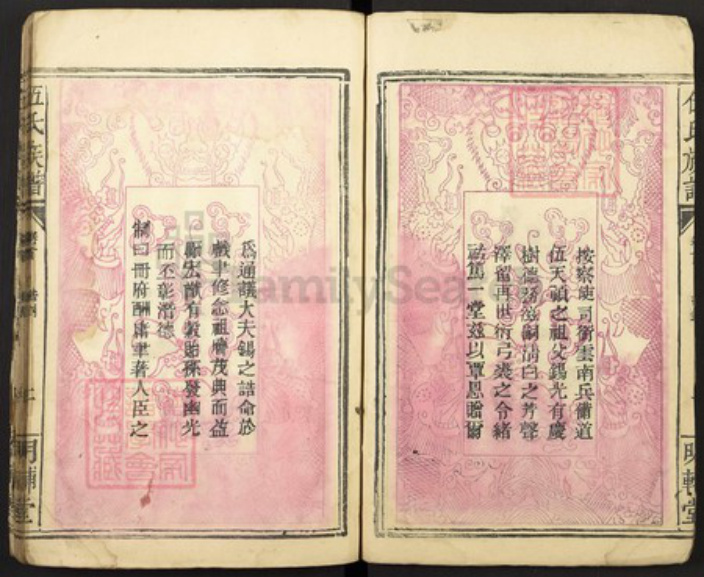 按察使司銜雲南兵備道
伍天禎之祖父錫光有慶
樹德務滋嗣清白之芳聲
澤留再世衍弓裘之令緒
祜篤一堂茲以覃恩贈爾
為通議大夫錫之誥命於
戲聿修念祖膺茂典而益
勵宏猷有穀貽孫發幽光
而丕彰潛德
制曰冊府酬庸聿著人臣之
伍氏族譜
明輔堂
FamilySearch